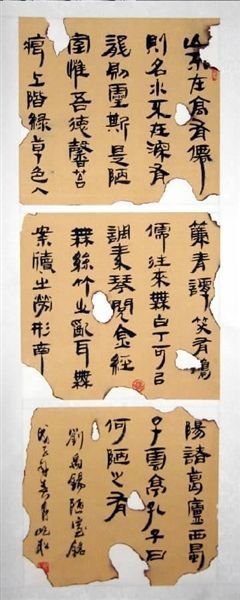 山不在高有僊
則名水不在深有
龍則靈斯是陋
室惟吾德馨苔
痕上階緑草色入
簾青談笑有鴻
儒往來無白丁可㠯
調素琴閲金經
無絲竹之亂耳無
案牘之勞形南
陽諸葛廬西蜀
子雲亭孔子曰
何陋之有
劉禹錫陋室銘
戊子年春月